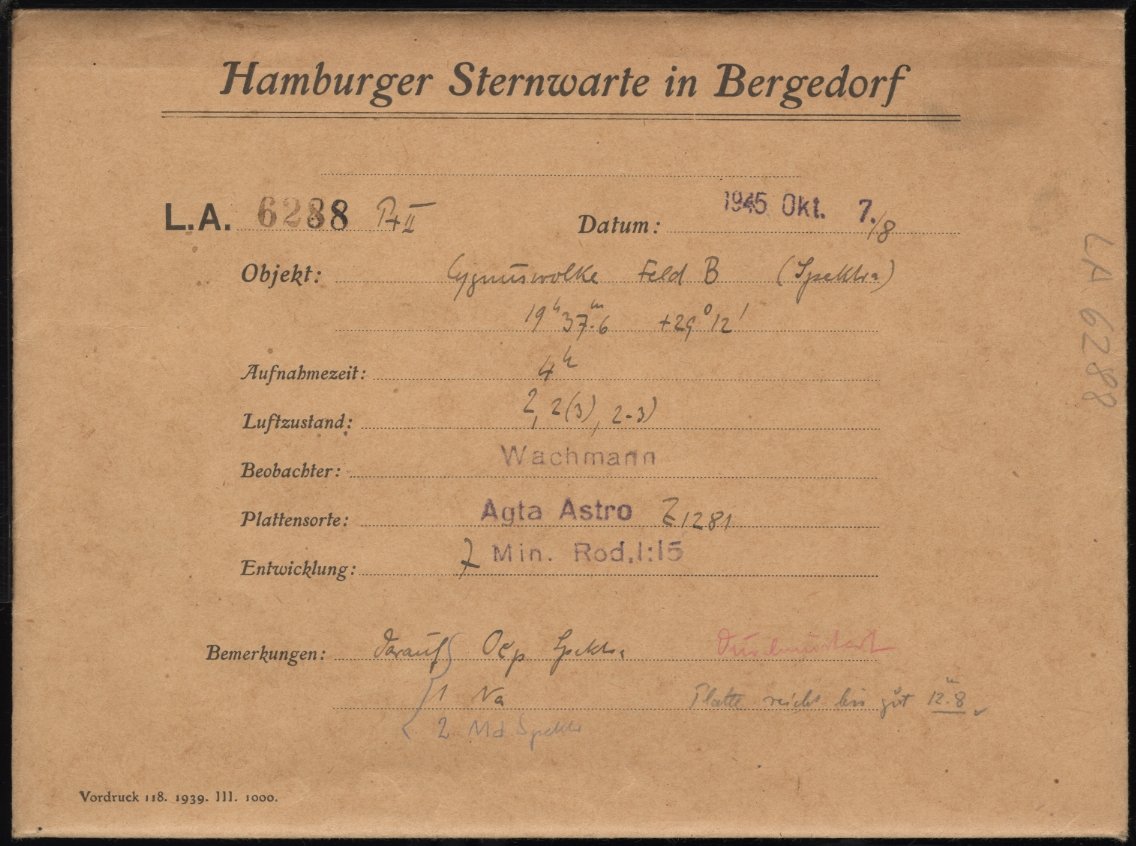 Hamburger Sternwarte in Bergedorf
L.A. 6288 Pr II
Datum: 1945 Okt. 7./8
Objekt: Cygnuswolke Feld B (Spektra)
19h 37m.6 +29° 12'
Aufnahmezeit: 4h
Luftzustand: 2, 2(3), 2-3)
Beobachter: Wachmann
Plattensorte: Agfa Astro Z1281
Entwicklung: 7 Min. Rod. 1:15
Bemerkungen: darauf Oep Spektra Durchmustert
1 Na Platte reicht bis gut 12m.8
2 Md Spektr
Vordruck 118. 1939. III. 1000.
LA 6288